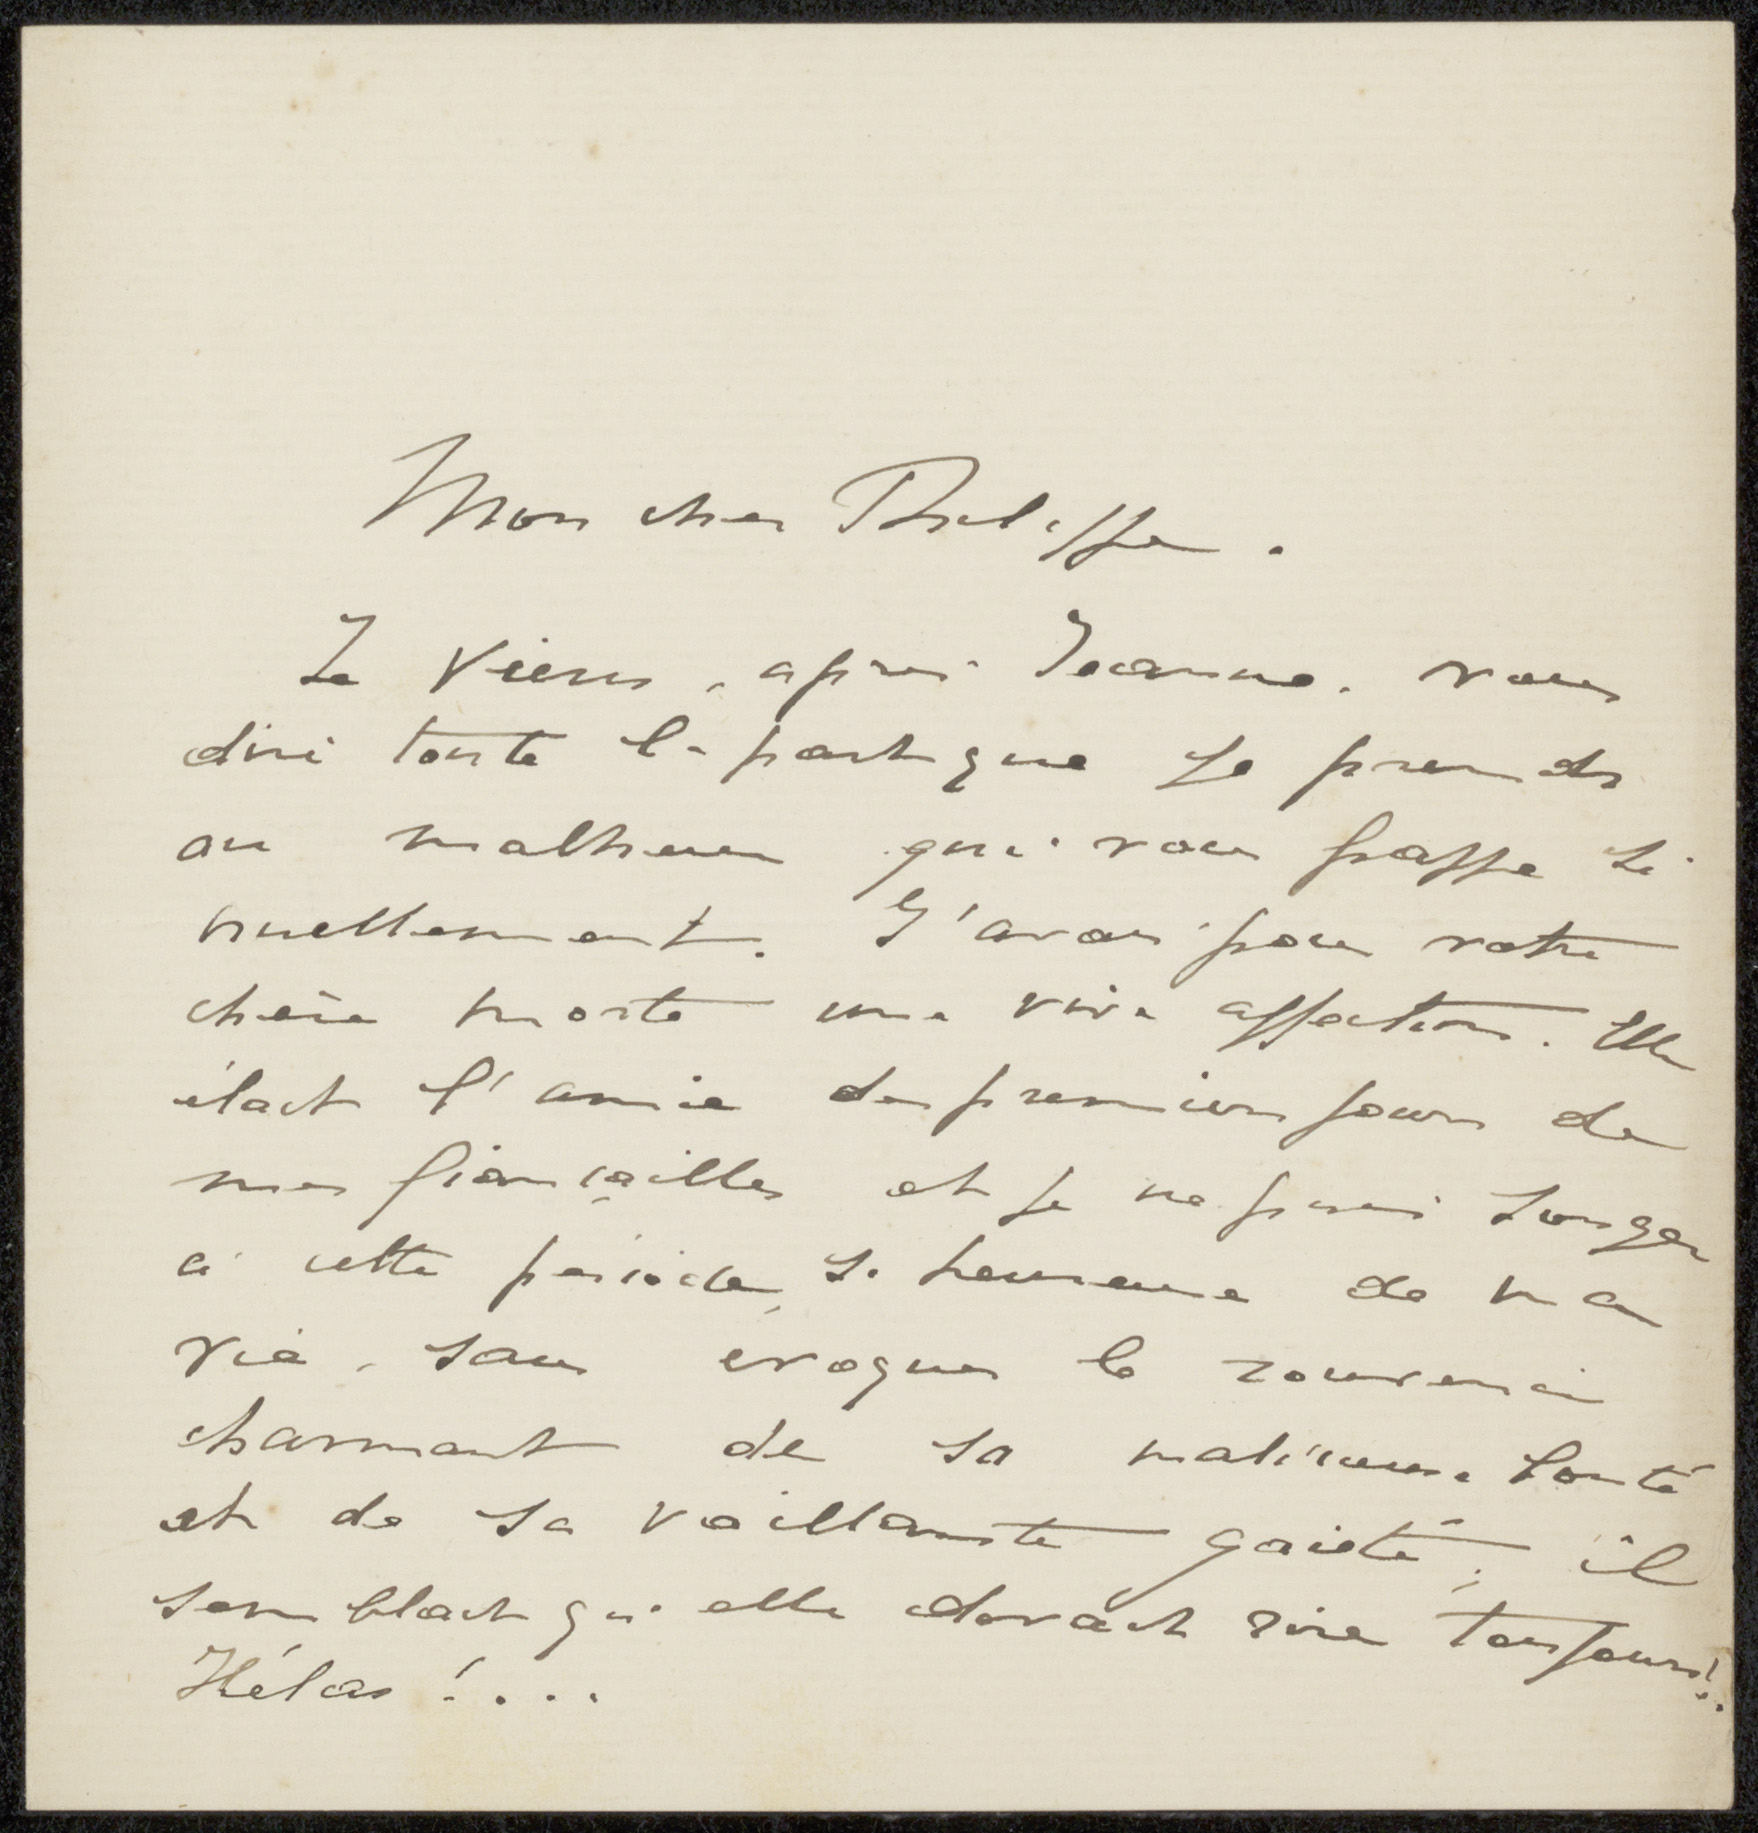 Mon cher Philippe.
Je viens, après Jeanne, vous
dire toute la part que je prends
au malheur qui vous frappe si
cruellement. J'avais pour votre
chère morte une vive affection. Elle
était l'amie des premiers jours de
mes fiançailles et je ne puis songer
à cette période, si heureuse de ma
vie, sans évoquer le souvenir
charmant de sa malicieuse bonté
et de sa vaillante gaieté; il
semblait qu'elle devait rire toujours!..
Hélas!...